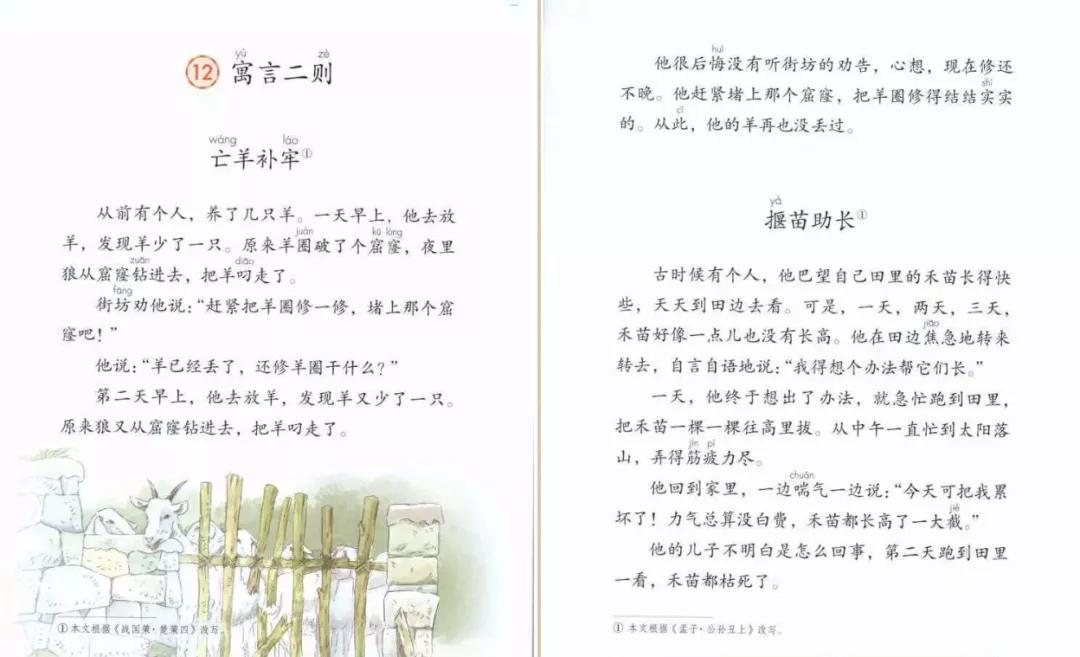 yù zé
12 寓言二则
wáng láo
亡羊补牢①
从前有个人，养了几只羊。一天早上，他去放
羊，发现羊少了一只。原来羊圈破了个窟窿，夜里
juàn kū lóng
狼从窟窿钻进去，把羊叼走了。
zuān diāo
街坊劝他说：“赶紧把羊圈修一修，堵上那个窟
fāng
窿吧！”
他说：“羊已经丢了，还修羊圈干什么？”
第二天早上，他去放羊，发现羊又少了一只。
原来狼又从窟窿钻进去，把羊叼走了。
① 本文根据《战国策·楚策四》改写。
huǐ
他很后悔没有听街坊的劝告，心想，现在修还
不晚。他赶紧堵上那个窟窿，把羊圈修得结结实实
shí
的。从此，他的羊再也没丢过。
cǐ
yà
揠苗助长①
古时候有个人，他巴望自己田里的禾苗长得快
些，天天到田边去看。可是，一天，两天，三天，
禾苗好像一点儿也没有长高。他在田边焦急地转来
jiāo
转去，自言自语地说：“我得想个办法帮它们长。”
一天，他终于想出了办法，就急忙跑到田里，
把禾苗一棵一棵往高里拔。从中午一直忙到太阳落
山，弄得筋疲力尽。
jīn pí
他回到家里，一边喘气一边说：“今天可把我累
chuǎn
坏了！力气总算没白费，禾苗都长高了一大截。”
jié
他的儿子不明白是怎么回事，第二天跑到田里
一看，禾苗都枯死了。
① 本文根据《孟子·公孙丑上》改写。